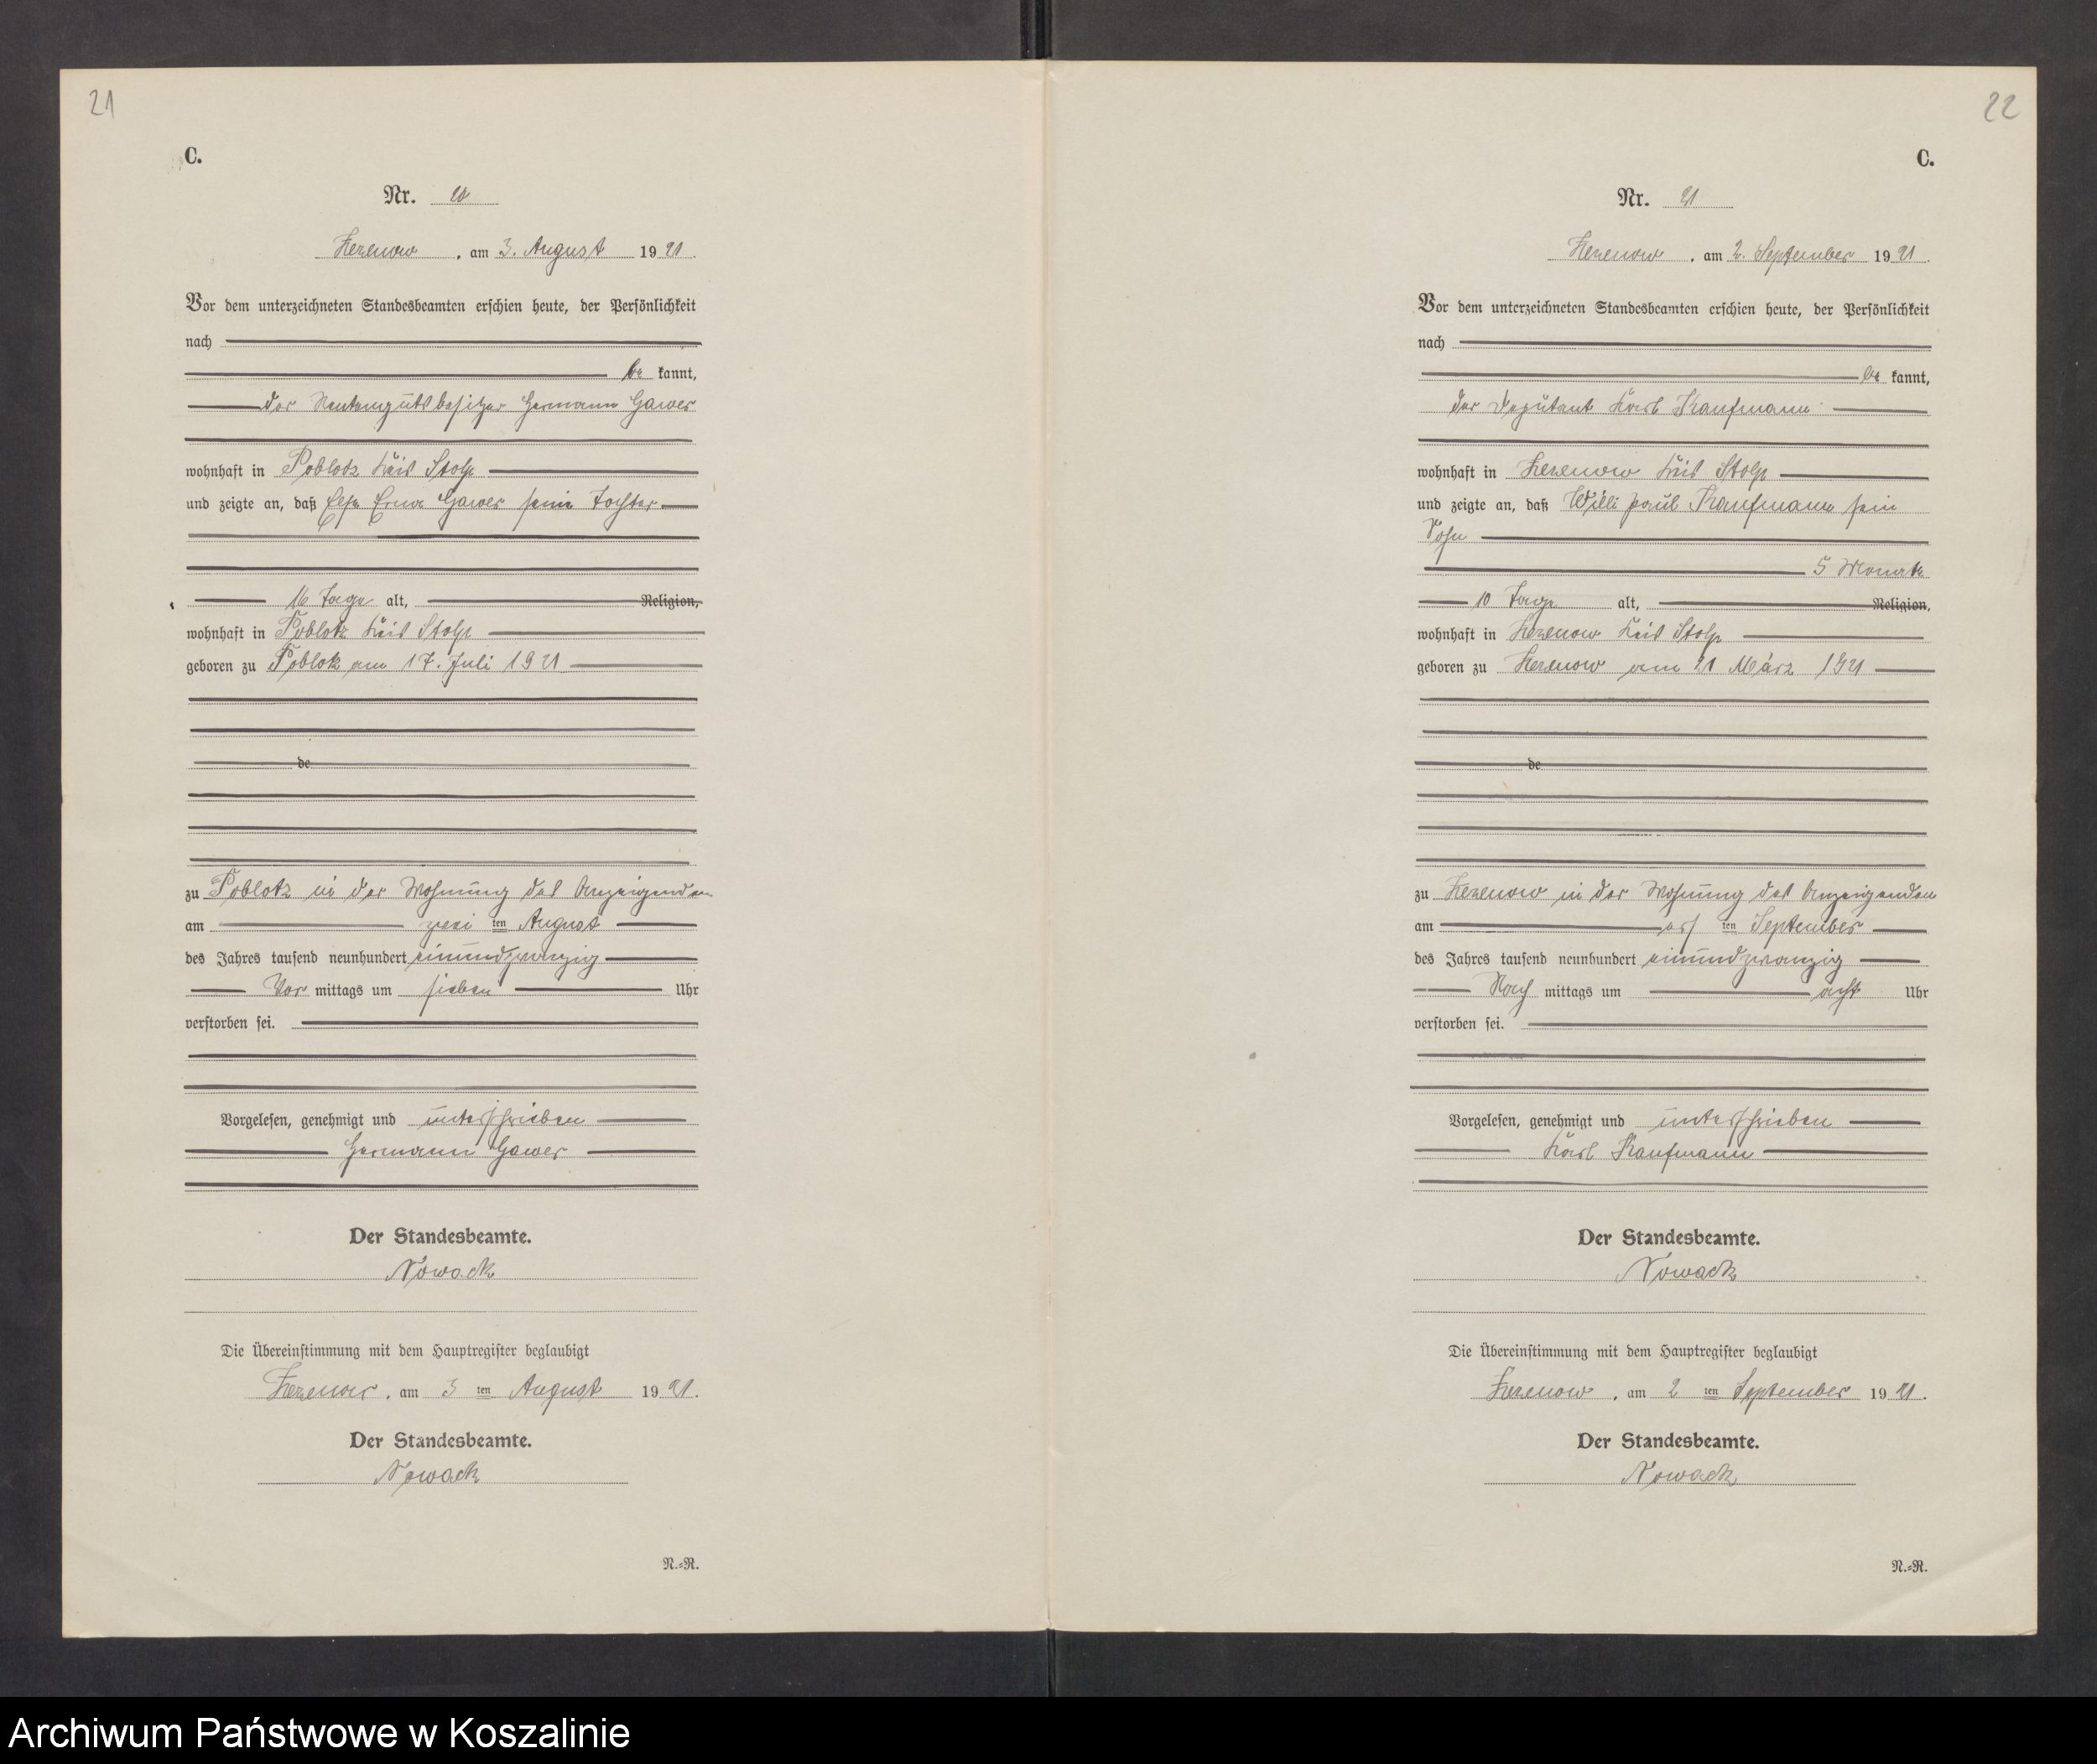 21
C.
Nr. 20
Zezenow, am 3. August 1921.
Vor dem unterzeichneten Standesbeamten erschien heute, der Persönlichkeit
nach
be kannt,
der Rentengutsbesitzer Hermann Gawer
wohnhaft in Poblotz Kreis Stolp
und zeigte an, daß Else Erna Gawer seine Tochter
16 Tage alt, Religion,
wohnhaft in Poblotz Kreis Stolp
geboren zu Poblotz am 17. Juli 1921
de
zu Poblotz in der Wohnung des Anzeigenden
am zwei ten August
des Jahres tausend neunhundert einundzwanzig
Vor mittags um sieben Uhr
verstorben sei.
Vorgelesen, genehmigt und unterschrieben
Hermann Gawer
Der Standesbeamte.
Nowack
Die Übereinstimmung mit dem Hauptregister beglaubigt
Zezenow, am 3 ten August 1921.
Der Standesbeamte.
Nowack
N.=R.
22
C.
Nr. 21
Zezenow, am 2. September 1921.
Vor dem unterzeichneten Standesbeamten erschien heute, der Persönlichkeit
nach
be kannt,
der Deputant Karl Kaufmann
wohnhaft in Zezenow Kreis Stolp
und zeigte an, daß Willi Paul Kaufmann sein
Sohn
5 Monate
10 Tage alt, Religion,
wohnhaft in Zezenow Kreis Stolp
geboren zu Zezenow am 21 März 1921
de
zu Zezenow in der Wohnung des Anzeigenden
am ers ten September
des Jahres tausend neunhundert einundzwanzig
Nach mittags um acht Uhr
verstorben sei.
Vorgelesen, genehmigt und unterschrieben
Karl Kaufmann
Der Standesbeamte.
Nowack
Die Übereinstimmung mit dem Hauptregister beglaubigt
Zezenow, am 2 ten September 1921.
Der Standesbeamte.
Nowack
N.=R.
Archiwum Państwowe w Koszalinie